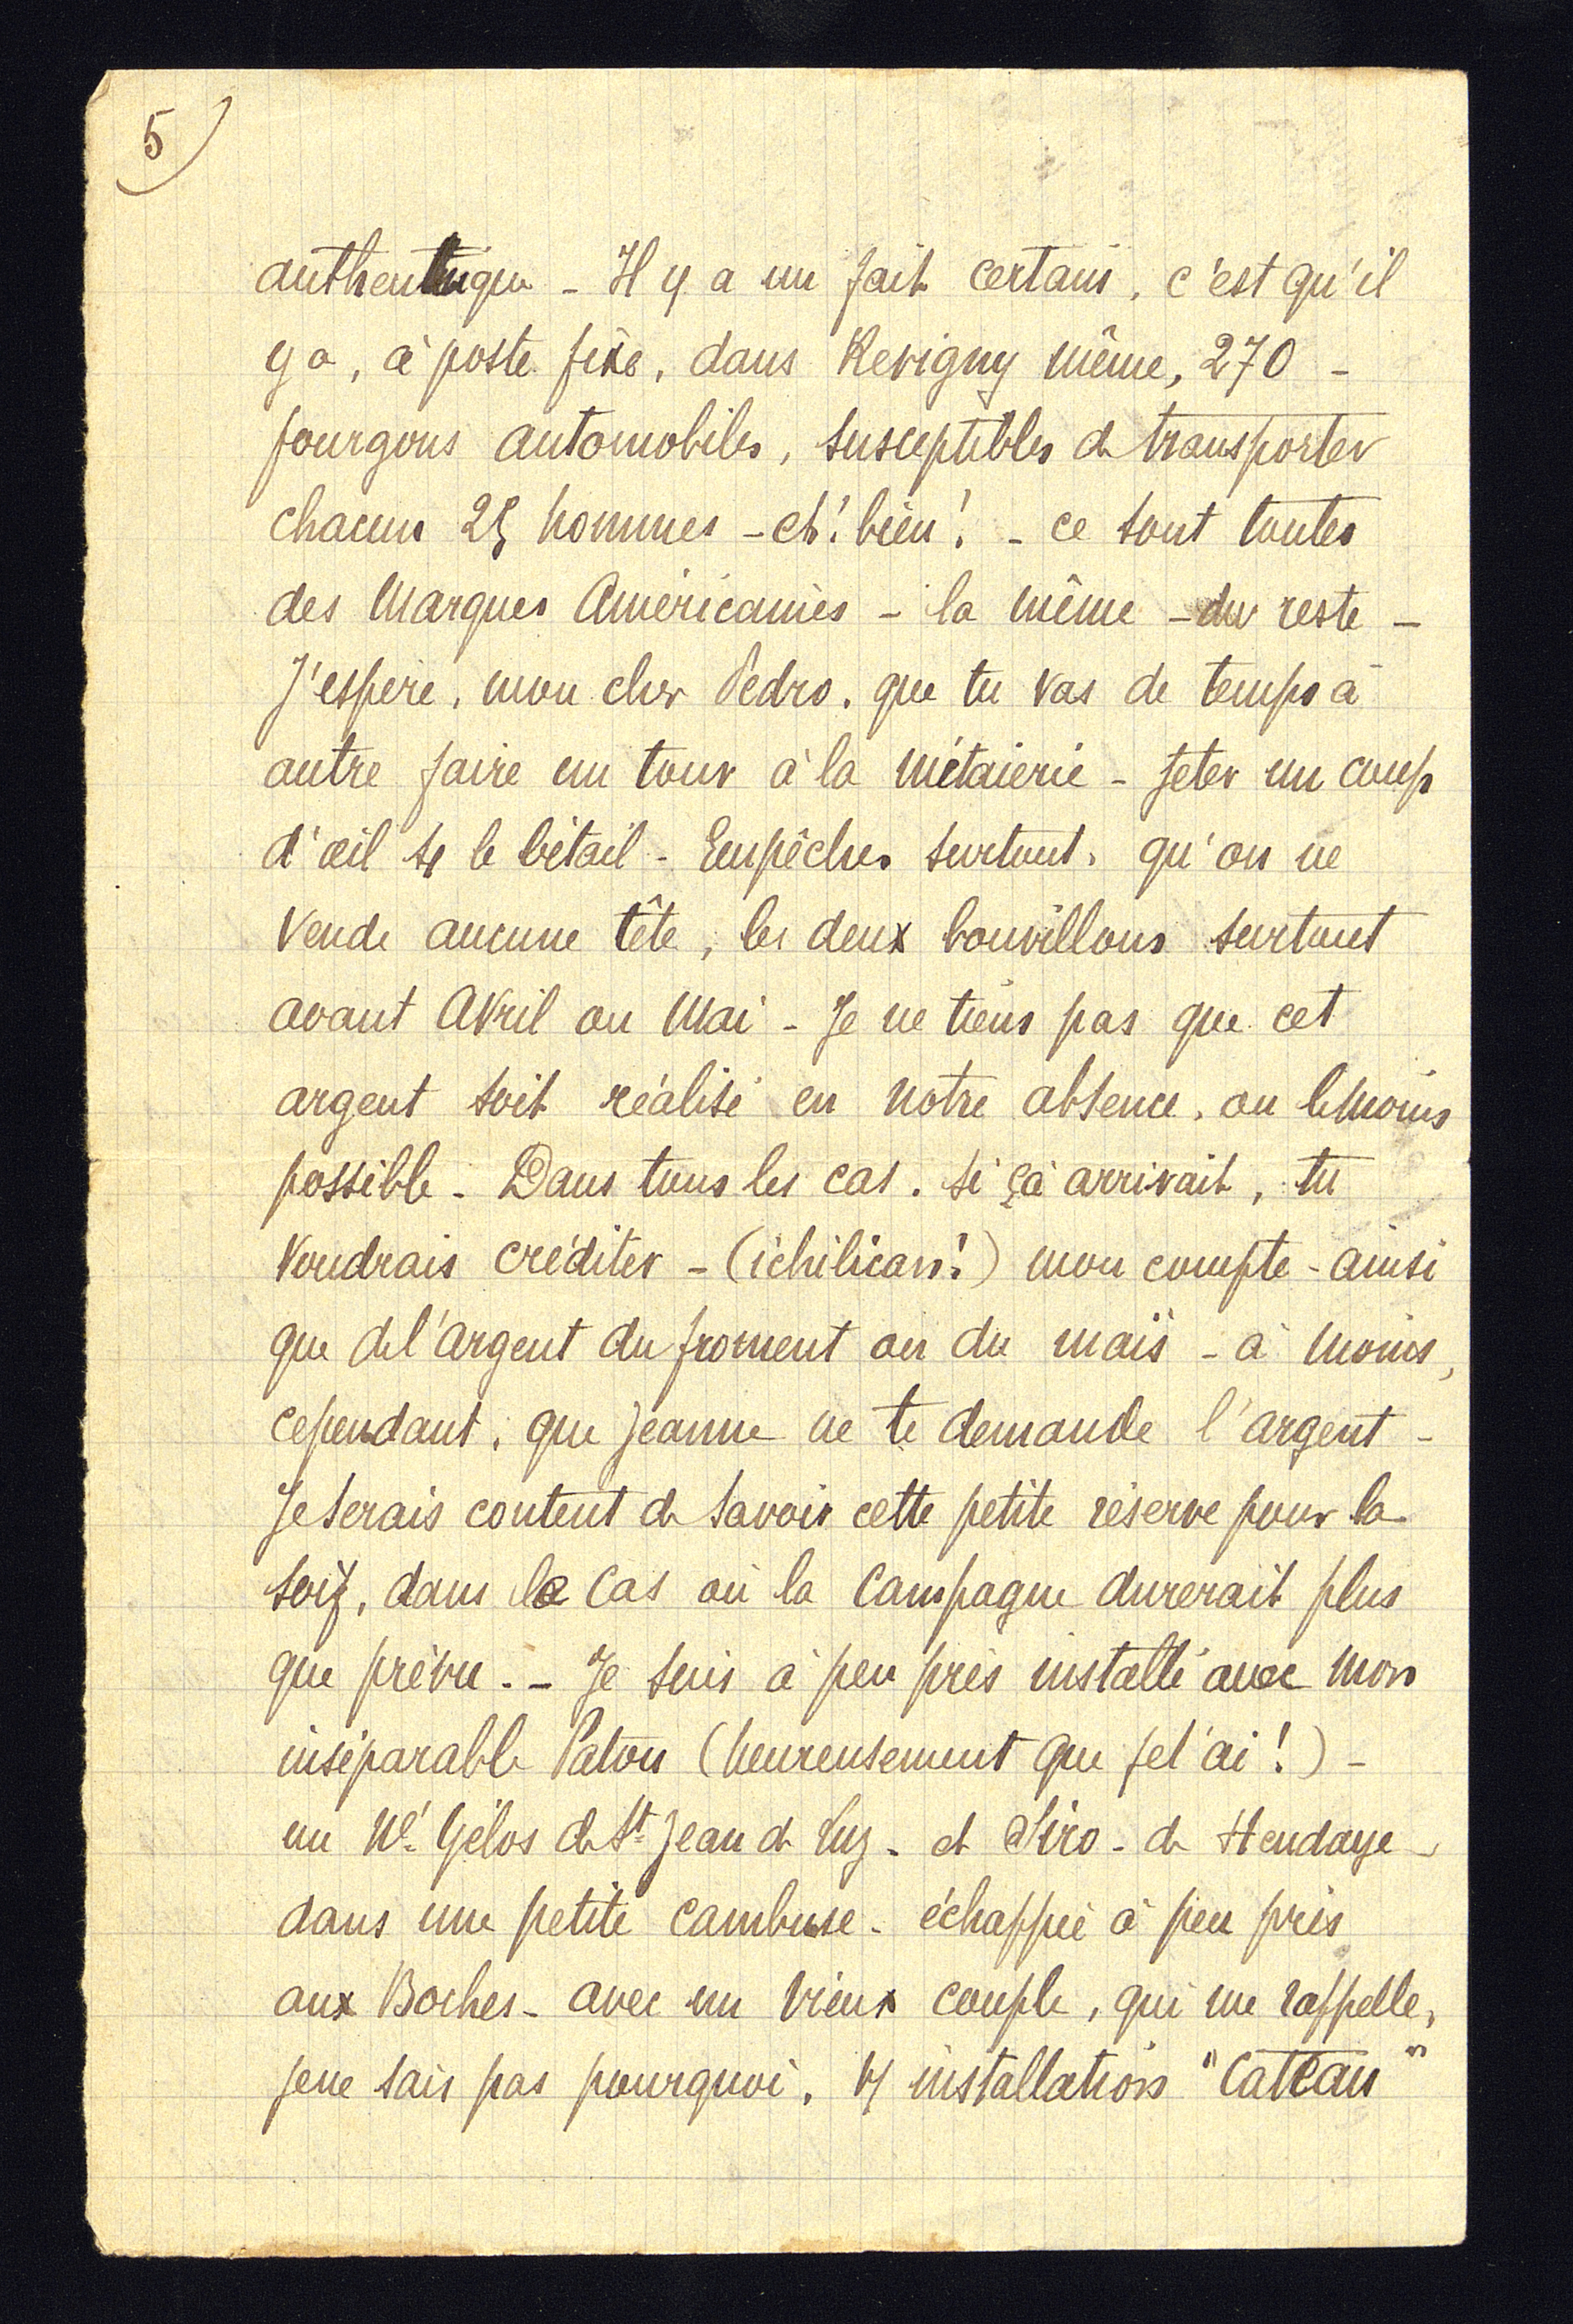 5)
authentique - Il y a un fait certain, c'est qu'il
y a, à poste fixe, dans Revigny même, 270 -
fourgons automobiles, susceptibles de transporter
chacun 25 hommes - eh! bien! - ce sont toutes
des Marques Américaines - la même - du reste -
J'espère, mon cher Pedro, que tu vas de temps à
autre faire un tour à la métairie - Jeter un coup
d'œil sr le bétail - Empêcher surtout, qu'on ne
vende aucune tête, les deux bouvillons surtout
avant Avril ou Mai - Je ne tiens pas que cet
argent soit réalisé en notre absence, ou le moins
possible - Dans tous les cas, si çà arrivait, tu
voudrais créditer - (ichilican!) mon compte - ainsi
que de l'argent du froment ou du maïs - à moins,
cependant, que Jeanne ne te demande l'argent -
Je serais content de savoir cette petite réserve pour la
soif, dans le cas où la Campagne durerait plus
que prévu. - Je suis à peu près installé avec mon
inséparable Patou (heureusement que je l'ai!) -
un Gélos de St Jean de Luz - et Siro - de Hendaye -
dans une petite cambuse - échappée à peu près
aux Boches - avec un vieux couple, qui me rappelle,
je ne sais pas pourquoi, installation "Catcau"